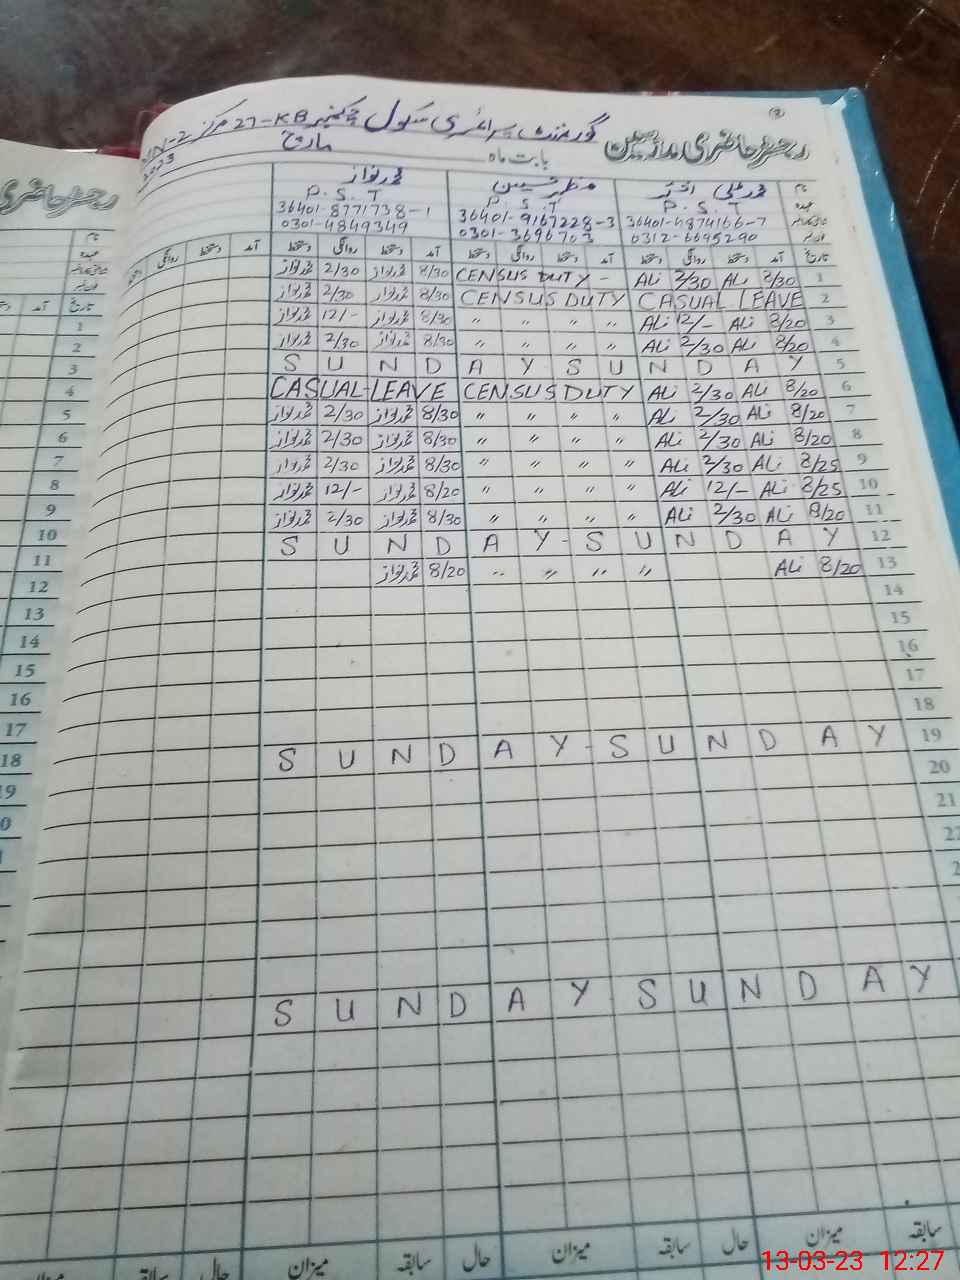 (2)
رجسٹر حاضری ملازمین گورنمنٹ پرائمری سکول چکنمبر 27-KB مرکز
بابت ماہ مارچ 2023
نام محمد علی اختر منظر حسین محمد نواز
عہدہ P.S.T P.S.T P.S.T
36401-4874166-7 36401-9167228-3 36401-8771738-1
0312-6695290 0301-3696703 0301-4849349
تاریخ آمد دستخط روانگی دستخط آمد دستخط روانگی دستخط آمد دستخط روانگی دستخط آمد دستخط روانگی دستخط
1 8/30 Ali 2/30 Ali CENSUS DUTY - 8/30 محمد نواز 2/30 محمد نواز
2 CASUAL LEAVE CENSUS DUTY 8/30 محمد نواز 2/30 محمد نواز
3 8/20 Ali 12/- Ali " " " " 8/30 محمد نواز 12/- محمد نواز
4 8/20 Ali 2/30 Ali " " " " 8/30 محمد نواز 2/30 محمد نواز
5 S U N D A Y S U N D A Y
6 8/20 Ali 2/30 Ali CENSUS DUTY CASUAL-LEAVE
7 8/20 Ali 2/30 Ali " " " " 8/30 محمد نواز 2/30 محمد نواز
8 8/20 Ali 2/30 Ali " " " " 8/30 محمد نواز 2/30 محمد نواز
9 8/25 Ali 2/30 Ali " " " " 8/30 محمد نواز 2/30 محمد نواز
10 8/25 Ali 12/- Ali " " " " 8/20 محمد نواز 12/- محمد نواز
11 8/20 Ali 2/30 Ali " " " " 8/30 محمد نواز 2/30 محمد نواز
12 S U N D A Y - S U N D A Y
13 8/20 Ali " " " " 8/20 محمد نواز
14
15
16
17
18
19 S U N D A Y - S U N D A Y
20
21
22
S U N D A Y S U N D A Y
سابقہ میزان حال سابقہ میزان حال سابقہ میزان
13-03-23 12:27
رجسٹر حاضری
نام
عہدہ
تاریخ آمد
1
2
3
4
5
6
7
8
9
10
11
12
13
14
15
16
17
18
19
حال سابقہ میزان